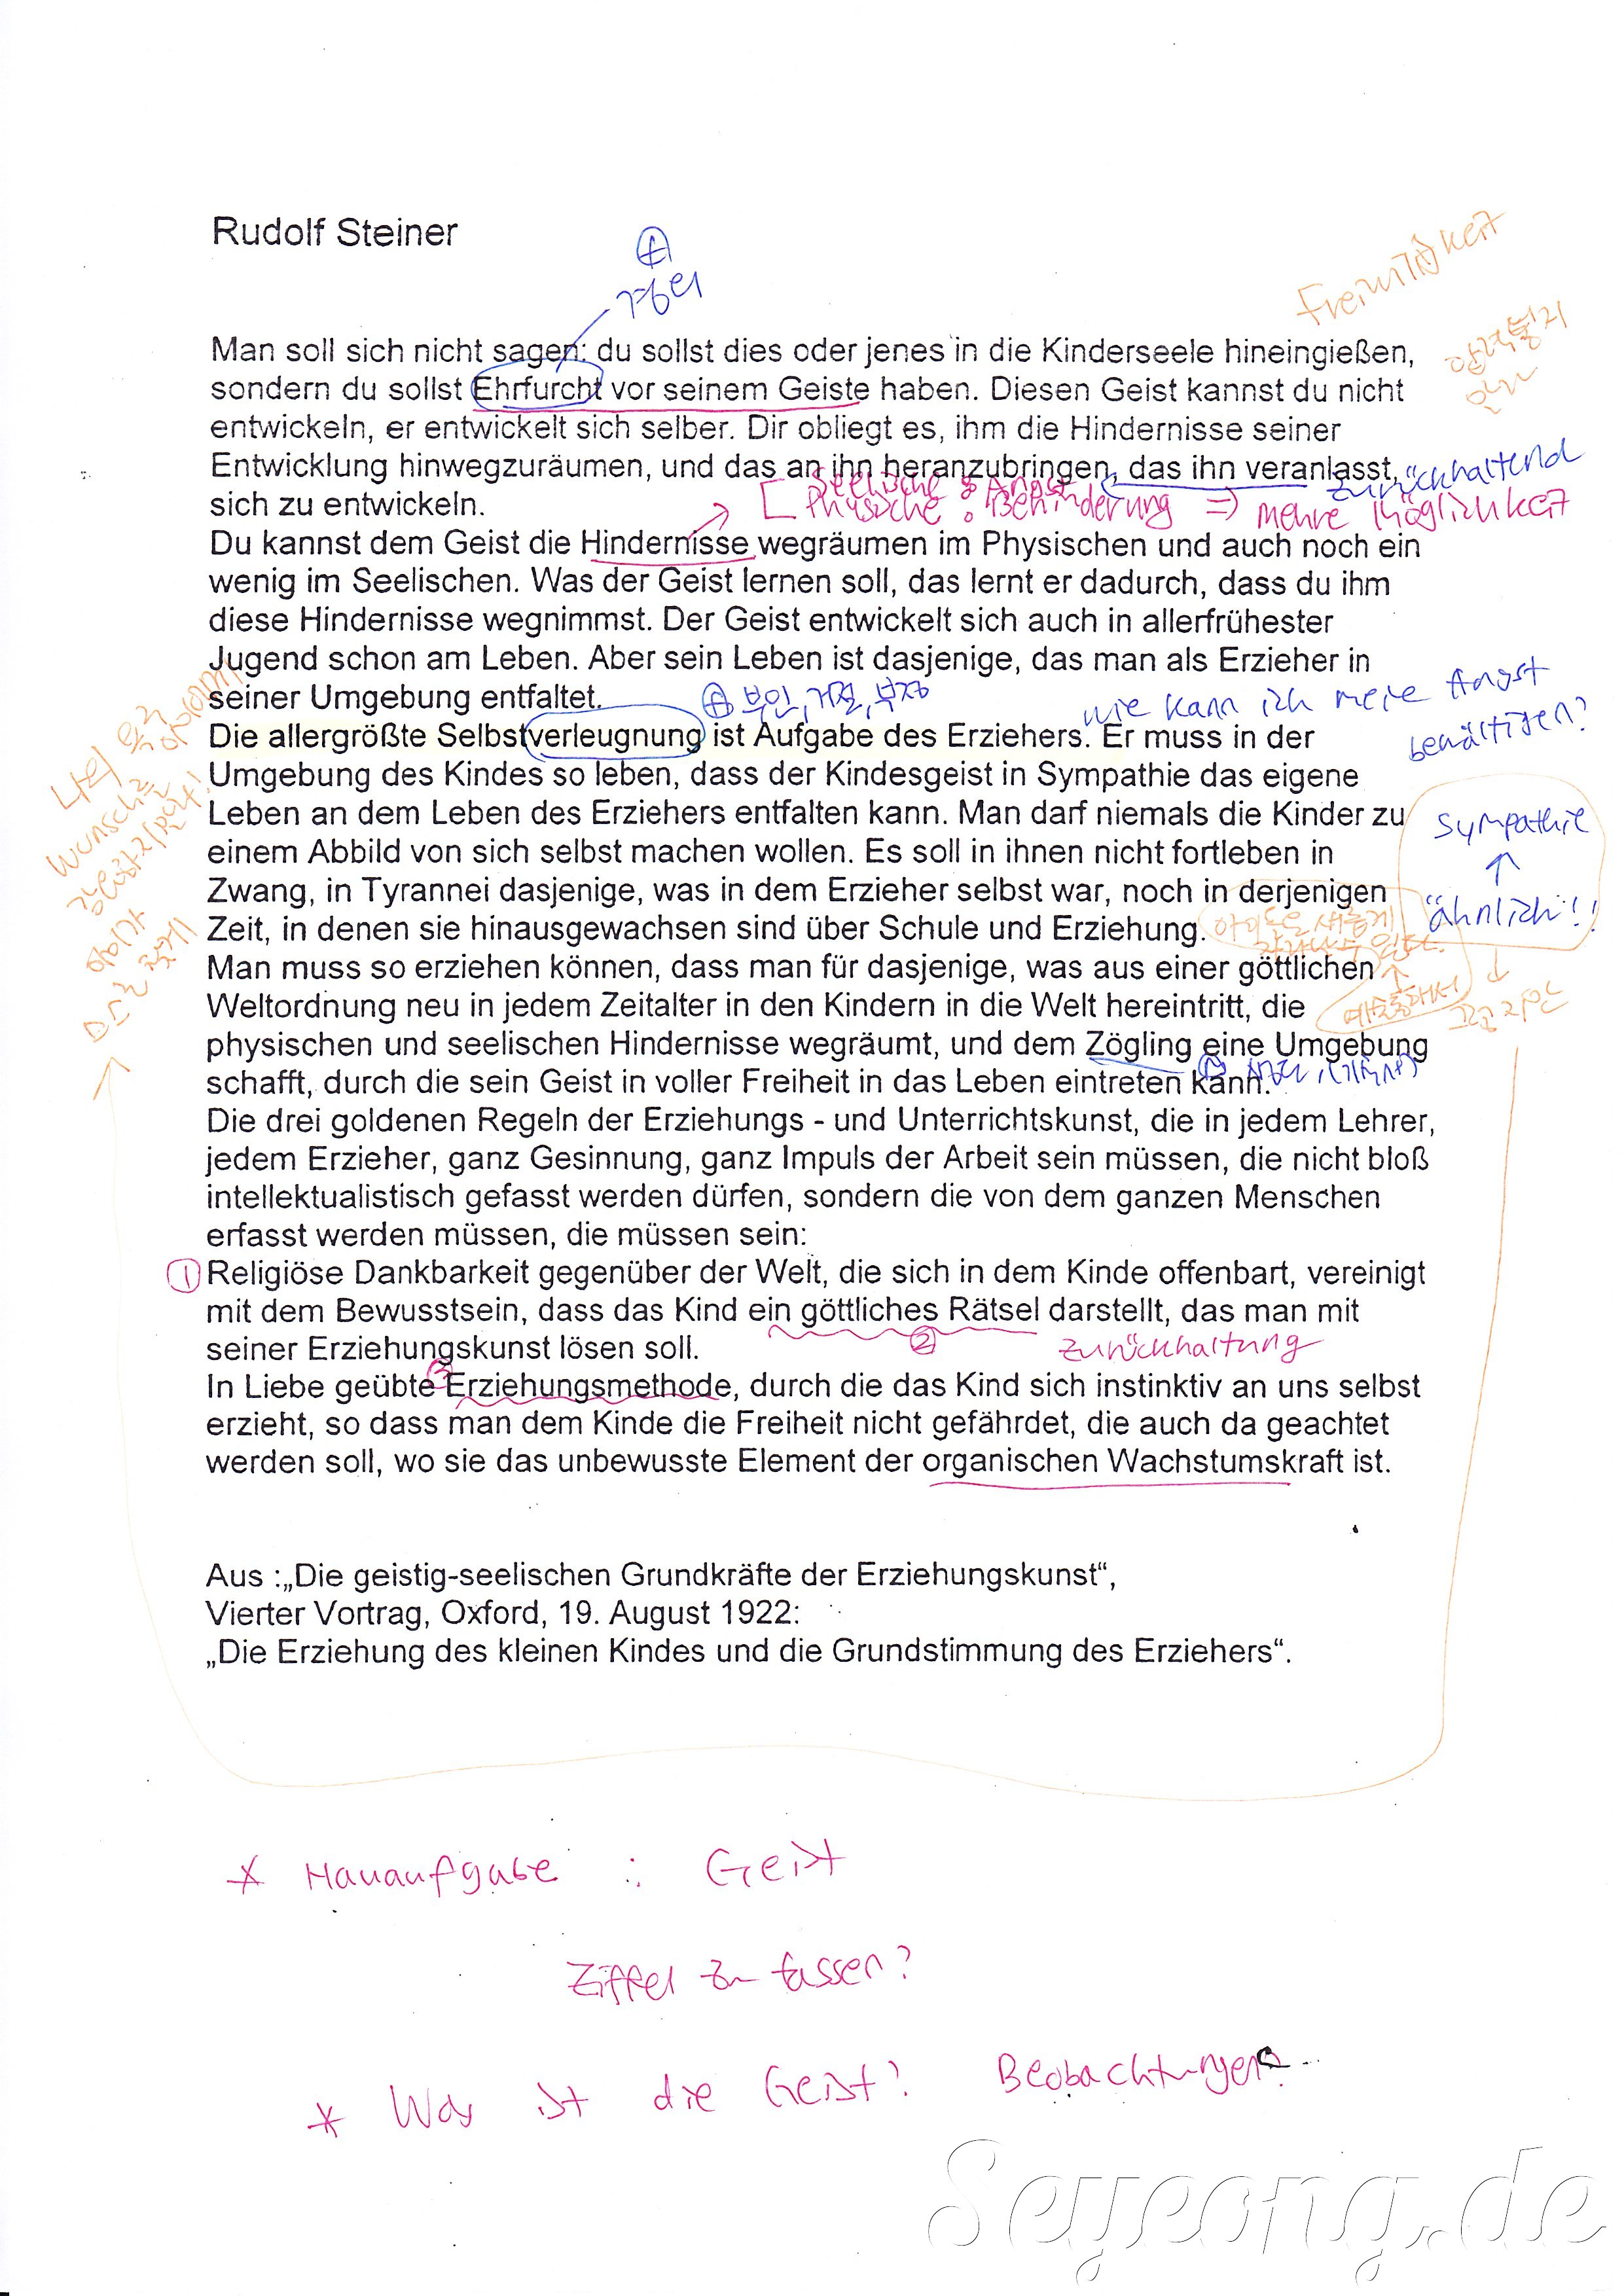 Rudolf Steiner
Freiwilligkeit
경외
Man soll sich nicht sagen: du sollst dies oder jenes in die Kinderseele hineingießen,
sondern du sollst Ehrfurcht vor seinem Geiste haben. Diesen Geist kannst du nicht
entwickeln, er entwickelt sich selber. Dir obliegt es, ihm die Hindernisse seiner
Entwicklung hinwegzuräumen, und das an ihn heranzubringen, das ihn veranlasst,
zurückhaltend
Seelische : Angst
sich zu entwickeln.
Physische : Behinderung ⇒ Mehre Möglichkeit
Du kannst dem Geist die Hindernisse wegräumen im Physischen und auch noch ein
wenig im Seelischen. Was der Geist lernen soll, das lernt er dadurch, dass du ihm
diese Hindernisse wegnimmst. Der Geist entwickelt sich auch in allerfrühester
Jugend schon am Leben. Aber sein Leben ist dasjenige, das man als Erzieher in
seiner Umgebung entfaltet.
부인, 거절, 부정
wie kann ich meine Angst
bewältigen?
Die allergrößte Selbstverleugnung ist Aufgabe des Erziehers. Er muss in der
Umgebung des Kindes so leben, dass der Kindesgeist in Sympathie das eigene
Leben an dem Leben des Erziehers entfalten kann. Man darf niemals die Kinder zu
Sympathie
↑
"ähnlich"!!
einem Abbild von sich selbst machen wollen. Es soll in ihnen nicht fortleben in
Zwang, in Tyrannei dasjenige, was in dem Erzieher selbst war, noch in derjenigen
Zeit, in denen sie hinausgewachsen sind über Schule und Erziehung.
Man muss so erziehen können, dass man für dasjenige, was aus einer göttlichen
Weltordnung neu in jedem Zeitalter in den Kindern in die Welt hereintritt, die
physischen und seelischen Hindernisse wegräumt, und dem Zögling eine Umgebung
schafft, durch die sein Geist in voller Freiheit in das Leben eintreten kann.
Die drei goldenen Regeln der Erziehungs - und Unterrichtskunst, die in jedem Lehrer,
jedem Erzieher, ganz Gesinnung, ganz Impuls der Arbeit sein müssen, die nicht bloß
intellektualistisch gefasst werden dürfen, sondern die von dem ganzen Menschen
erfasst werden müssen, die müssen sein:
① Religiöse Dankbarkeit gegenüber der Welt, die sich in dem Kinde offenbart, vereinigt
mit dem Bewusstsein, dass das Kind ein göttliches Rätsel darstellt, das man mit
seiner Erziehungskunst lösen soll. ② Zurückhaltung
In Liebe geübte Erziehungsmethode, durch die das Kind sich instinktiv an uns selbst
erzieht, so dass man dem Kinde die Freiheit nicht gefährdet, die auch da geachtet
werden soll, wo sie das unbewusste Element der organischen Wachstumskraft ist.
Aus :„Die geistig-seelischen Grundkräfte der Erziehungskunst“,
Vierter Vortrag, Oxford, 19. August 1922:
„Die Erziehung des kleinen Kindes und die Grundstimmung des Erziehers“.
* Hauaufgabe : Geist
Ziffel zu fassen?
* Was ist die Geist? Beobachtungen
Seyeong.de